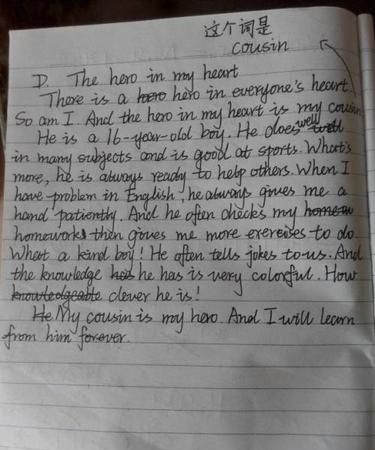 这个词是
cousin
D. The hero in my heart
There is a hero hero in everyone's heart.
So am I. And the hero in my heart is my cousin
He is a 16-year-old boy. He does well well
in many subjects and is good at sports. What's
more, he is always ready to help others. When I
have problem in English, he always gives me a
hand patiently. And he often checks my homew
homeworks then gives me more exercises to do.
What a kind boy! He often tells jokes to us. And
the knowledge has he has is very colorful. How
knowledgeable clever he is!
He My cousin is my hero. And I will learn
from him forever.